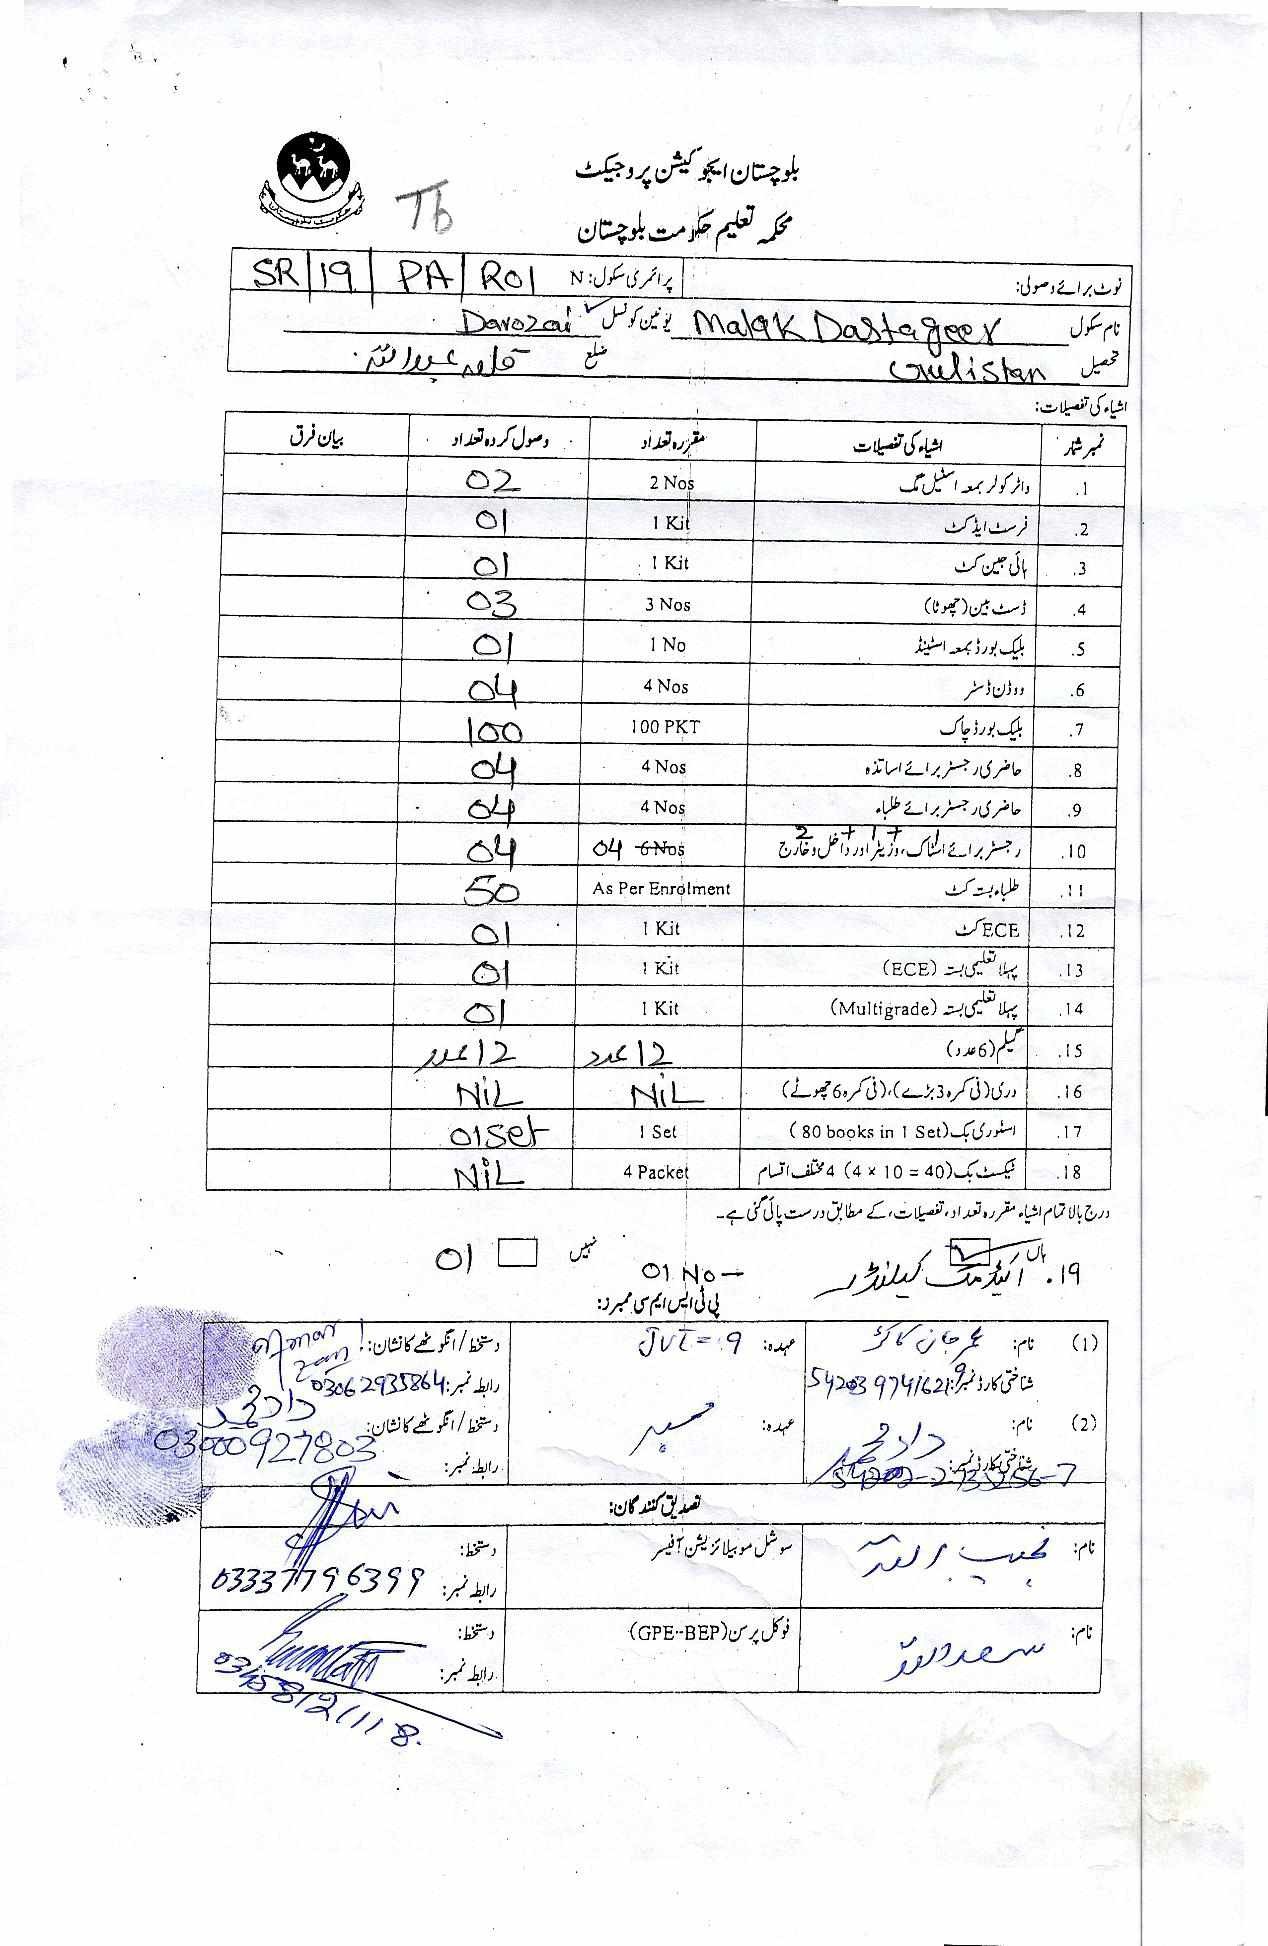 بلوچستان ایجوکیشن پروجیکٹ
Tb
محکمہ تعلیم حکومت بلوچستان
نوٹ برائے وصولی: پرائمری سکول: N SR/19/PA/R01
نام سکول Malak Dastageer یونین کونسل Darozai
تحصیل Gulistan ضلع قلعہ عبداللہ
اشیاء کی تفصیلات:
نمبر شمار اشیاء کی تفصیلات مقررہ تعداد وصول کردہ تعداد بیان فرق
1. واٹر کولر بمعہ اسٹیل مگ 2 Nos 02
2. فرسٹ ایڈ کٹ 1 Kit 01
3. ہائی جین کٹ 1 Kit 01
4. ڈسٹ بین (چھوٹا) 3 Nos 03
5. بلیک بورڈ بمعہ اسٹینڈ 1 No 01
6. ووڈن ڈسٹر 4 Nos 04
7. بلیک بورڈ چاک 100 PKT 100
8. حاضری رجسٹر برائے اساتذہ 4 Nos 04
9. حاضری رجسٹر برائے طلباء 4 Nos 04
2 + 1 + 1
10. رجسٹر برائے اسٹاک، وزیٹر اور داخل و خارج 6 Nos 04 04
11. طلباء بستہ کٹ As Per Enrolment 50
12. ECE کٹ 1 Kit 01
13. پہلا تعلیمی بستہ (ECE) 1 Kit 01
14. پہلا تعلیمی بستہ (Multigrade) 1 Kit 01
15. گلیم (6 عدد) 12 عدد 12 عدد
16. دری (فی کمرہ 3 بڑے)، (فی کمرہ 6 چھوٹے) NiL NiL
17. اسٹوری بک (80 books in 1 Set) 1 Set 01 Set
18. ٹیکسٹ بک (4 × 10 = 40) 4 مختلف اقسام 4 Packet NiL
درج بالا تمام اشیاء مقررہ تعداد، تفصیلات، کے مطابق درست پائی گئی ہے۔
ہاں نہیں
19. کیلنڈر 01 No 01
پی ٹی ایس ایم سی ممبرز:
(1) نام: عہدہ: JVT-9 دستخط/انگوٹھے کا نشان:
شناختی کارڈ نمبر: رابطہ نمبر: 03062935864
(2) نام: داد محمد عہدہ: ممبر دستخط/انگوٹھے کا نشان: داد محمد
شناختی کارڈ نمبر: رابطہ نمبر:
تصدیق کنندگان:
نام: نجیب اللہ سوشل موبیلائزیشن آفیسر دستخط:
رابطہ نمبر: 03337796399
نام: سعد اللہ فوکل پرسن (GPE-BEP) دستخط:
رابطہ نمبر: